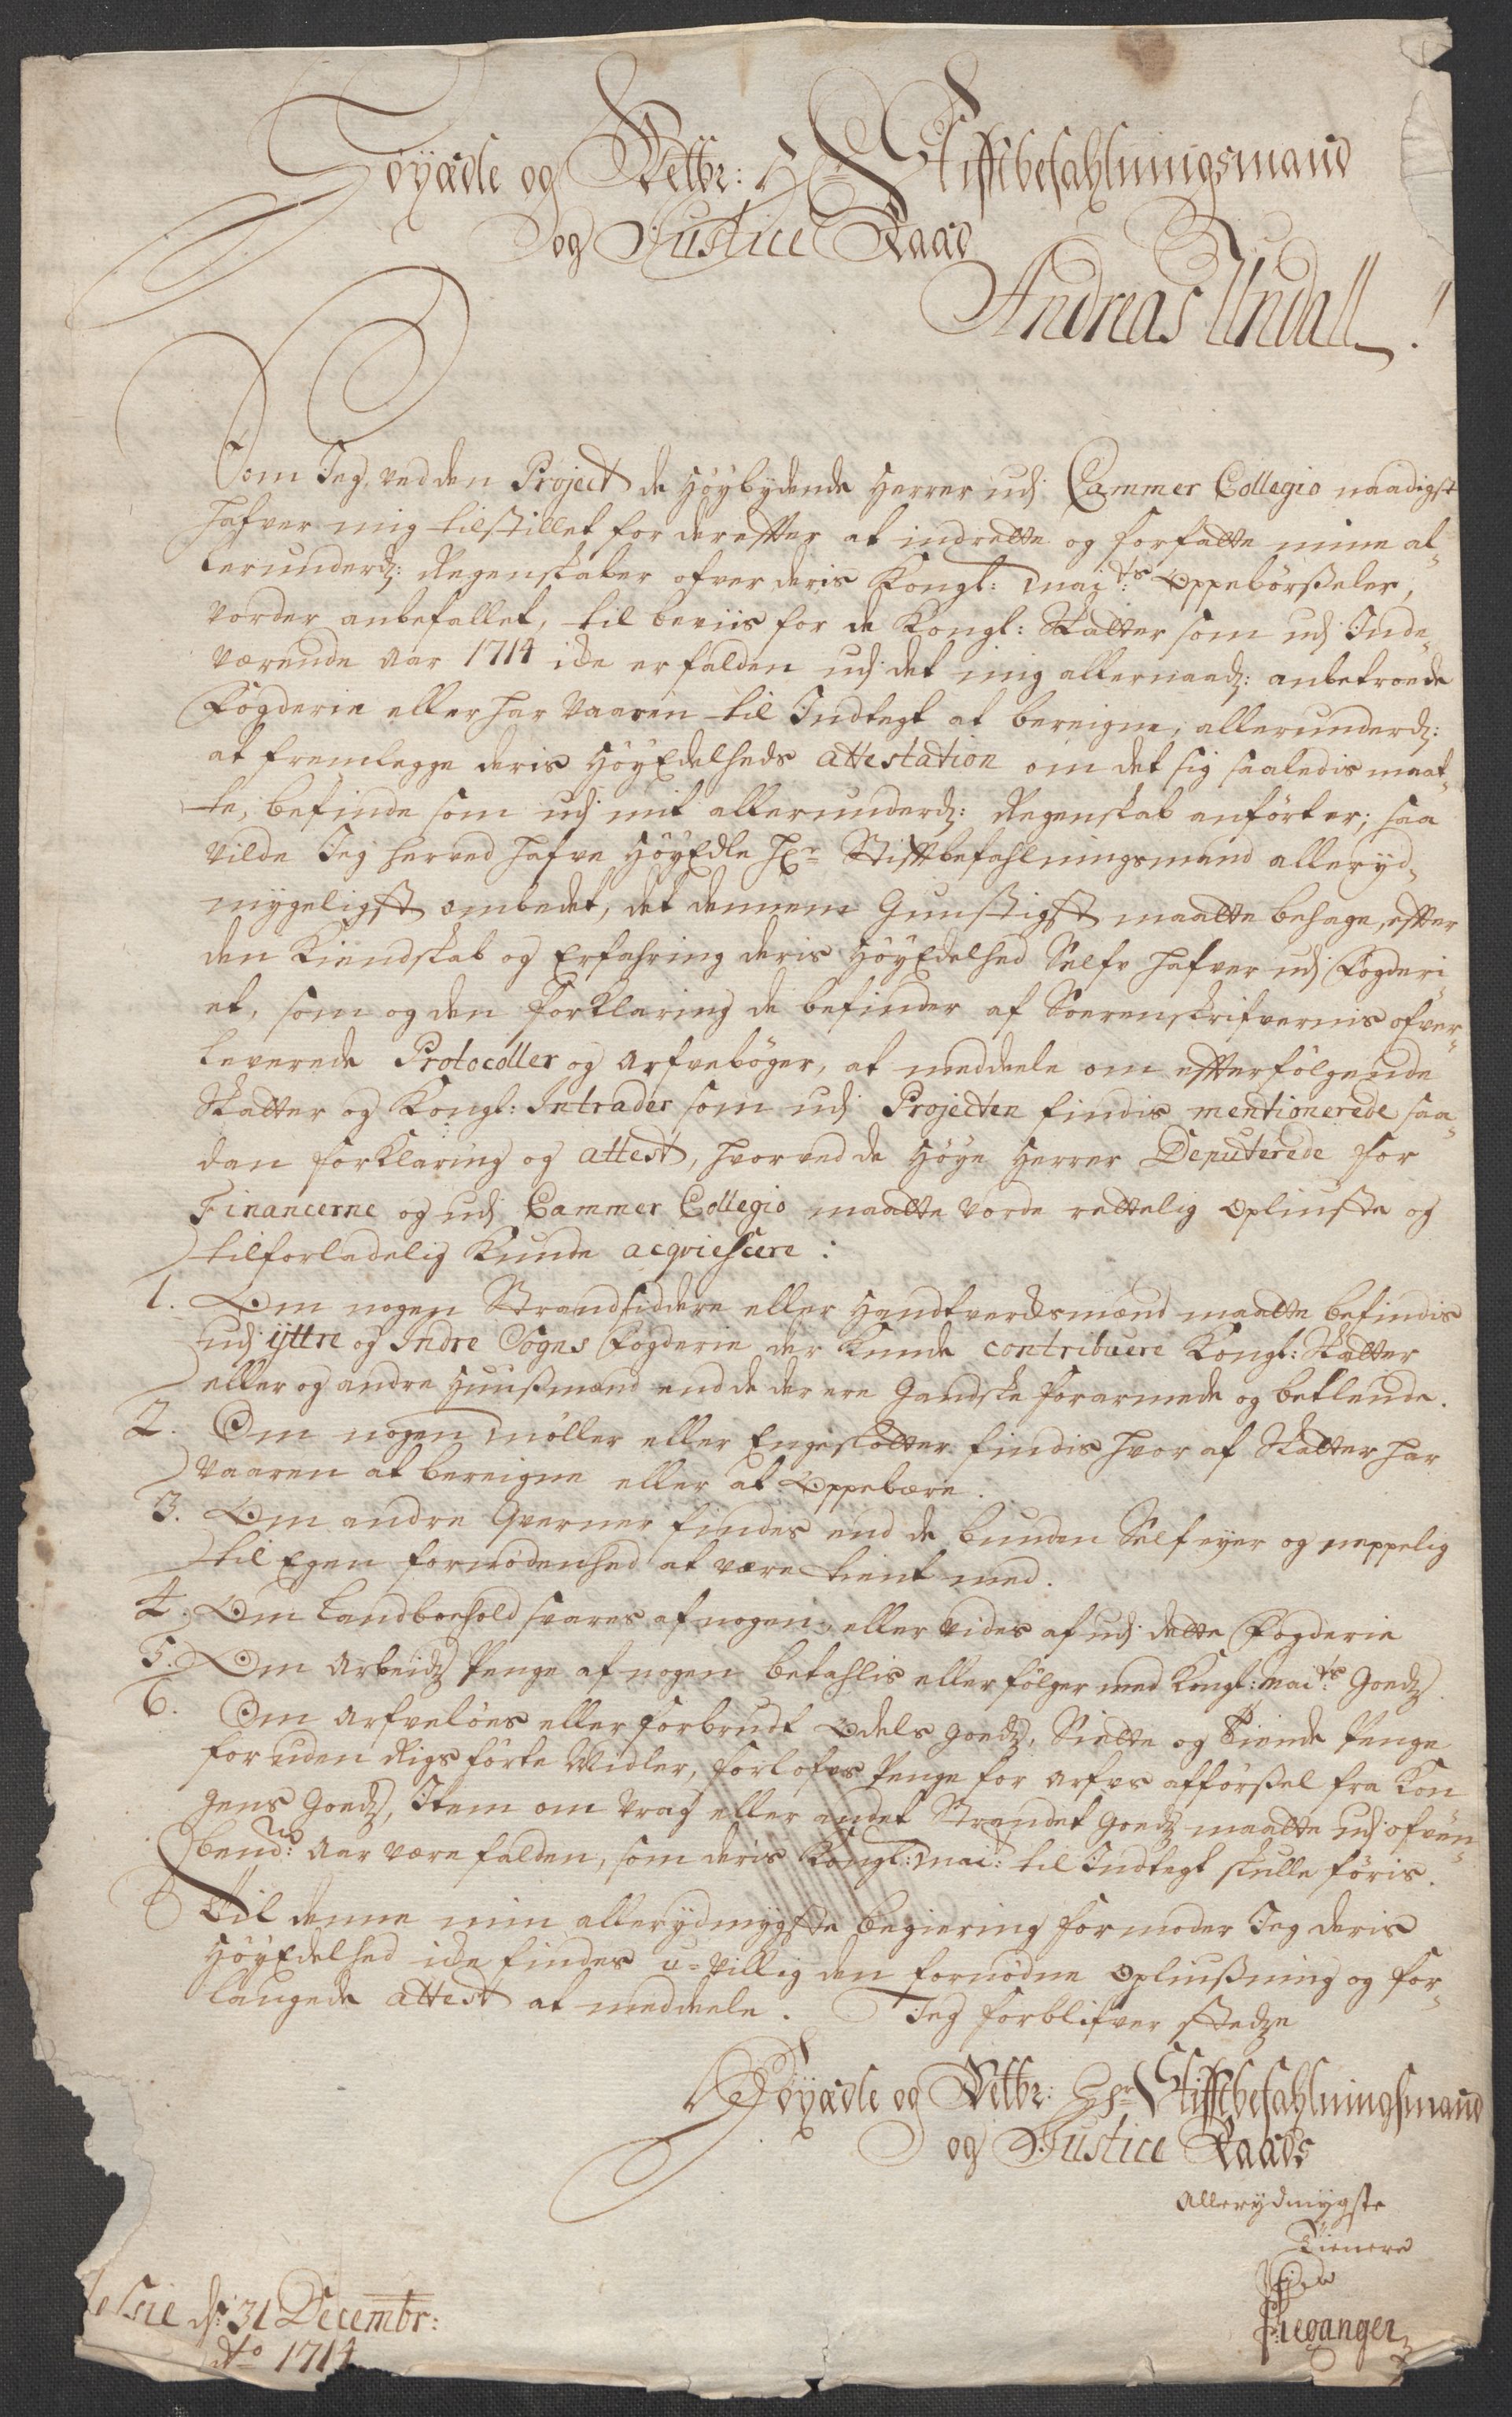 Høyædle og Velbr: Hr Stifftbefahlningsmand
og Justice Raad
Andreas Undall!
Som Jeg ved den Project de Høybydende Herrer udj Cammer Collegio naadigst
hafver mig tilstillet for derefter at indrette og forfatte mine al-
lerunderd: Regenskaber ofver deris Kongl: Maj:ts Oppebörßeler,
vorder anbefallet, til beviis for de Kongl: Skatter som udj Inde-
værende aar 1714 ide er falden udj det mig allernaad: anbetroede
Fogderie eller har vaaren til Indtegt at bereigne, allerunderd:
at fremlegge deris HøyEdelheds attestation om det sig saaledis maat-
te, befinde som udj mit allerunderd: Regenskab anført er; saa
vilde Jeg herved hafve HøyEdle Hr Stiftbefahlningsmand alleryd-
mygeligst ombedet, det dennem Gunstigst maatte behage, efter
den Kiendskab og Erfahring deris HøyEdelhed Self hafver udj Fogderi-
et, som og den forklaring de befinder af Sorenskrifvernis ofver-
leverede Protocoller og Arfvebøger, at meddeele om efterfølgende
Skatter og Kongl: Intrader som udj Projecten findis mentionerede saa-
dan forklaring og attest, hvorved de Høye Herrer Deputerede for
Financerne og udj Cammer Collegio maatte vorde rettelig Opliuste og
tilforladelig Kunde acqviescere:
1. Om nogen Strandsiddere eller Handtverksmænd maatte befindis
udj ÿttre og Indre Sogns Fogderie der Kunde contribuere Kongl: Skatter
eller og andre Huußmænd end de der ere Gandske forarmede og betlende.
2. Om nogen Møller eller Engeslötter findis hvor af Skatter har
vaaren at bereigne eller at Oppebære.
3. Om andre Qverner findes end de bunden Self eyer og neppelig
til Egen fornødenhed at være tient med.
4. Om Landboehold svares af nogen, eller vides af udj dette Fogderie
5. Om Arbeidz Penge af nogen betahlis eller følger med Kongl: Mai:ts Goedz.
6. Om Arfveløes eller forbrudt Odels goedz, Siette og Tiende Penge
for uden Rigs førte Midler, forlofs Penge for Arfvs afførßel fra Kon
gens Goedz, Item om Vrag eller andet Strandet Goedz maatte udj ofven-
bend:e aar være falden, som deris Kongl: Mai: til Indtegt skulle føris.
Til denne min allerydmygste begiering formoder Jeg deris
HøyEdelhed ide findes u-villig den fornødne Opliußning og for-
langede attest at meddeele. Jeg forblifver stedze
Høyædle og Velbr: Hr Stifftbefahlningsmand
og Justice Raads
Allerydmygste
Tienere
d: 31 Decembr:
Ao 1714